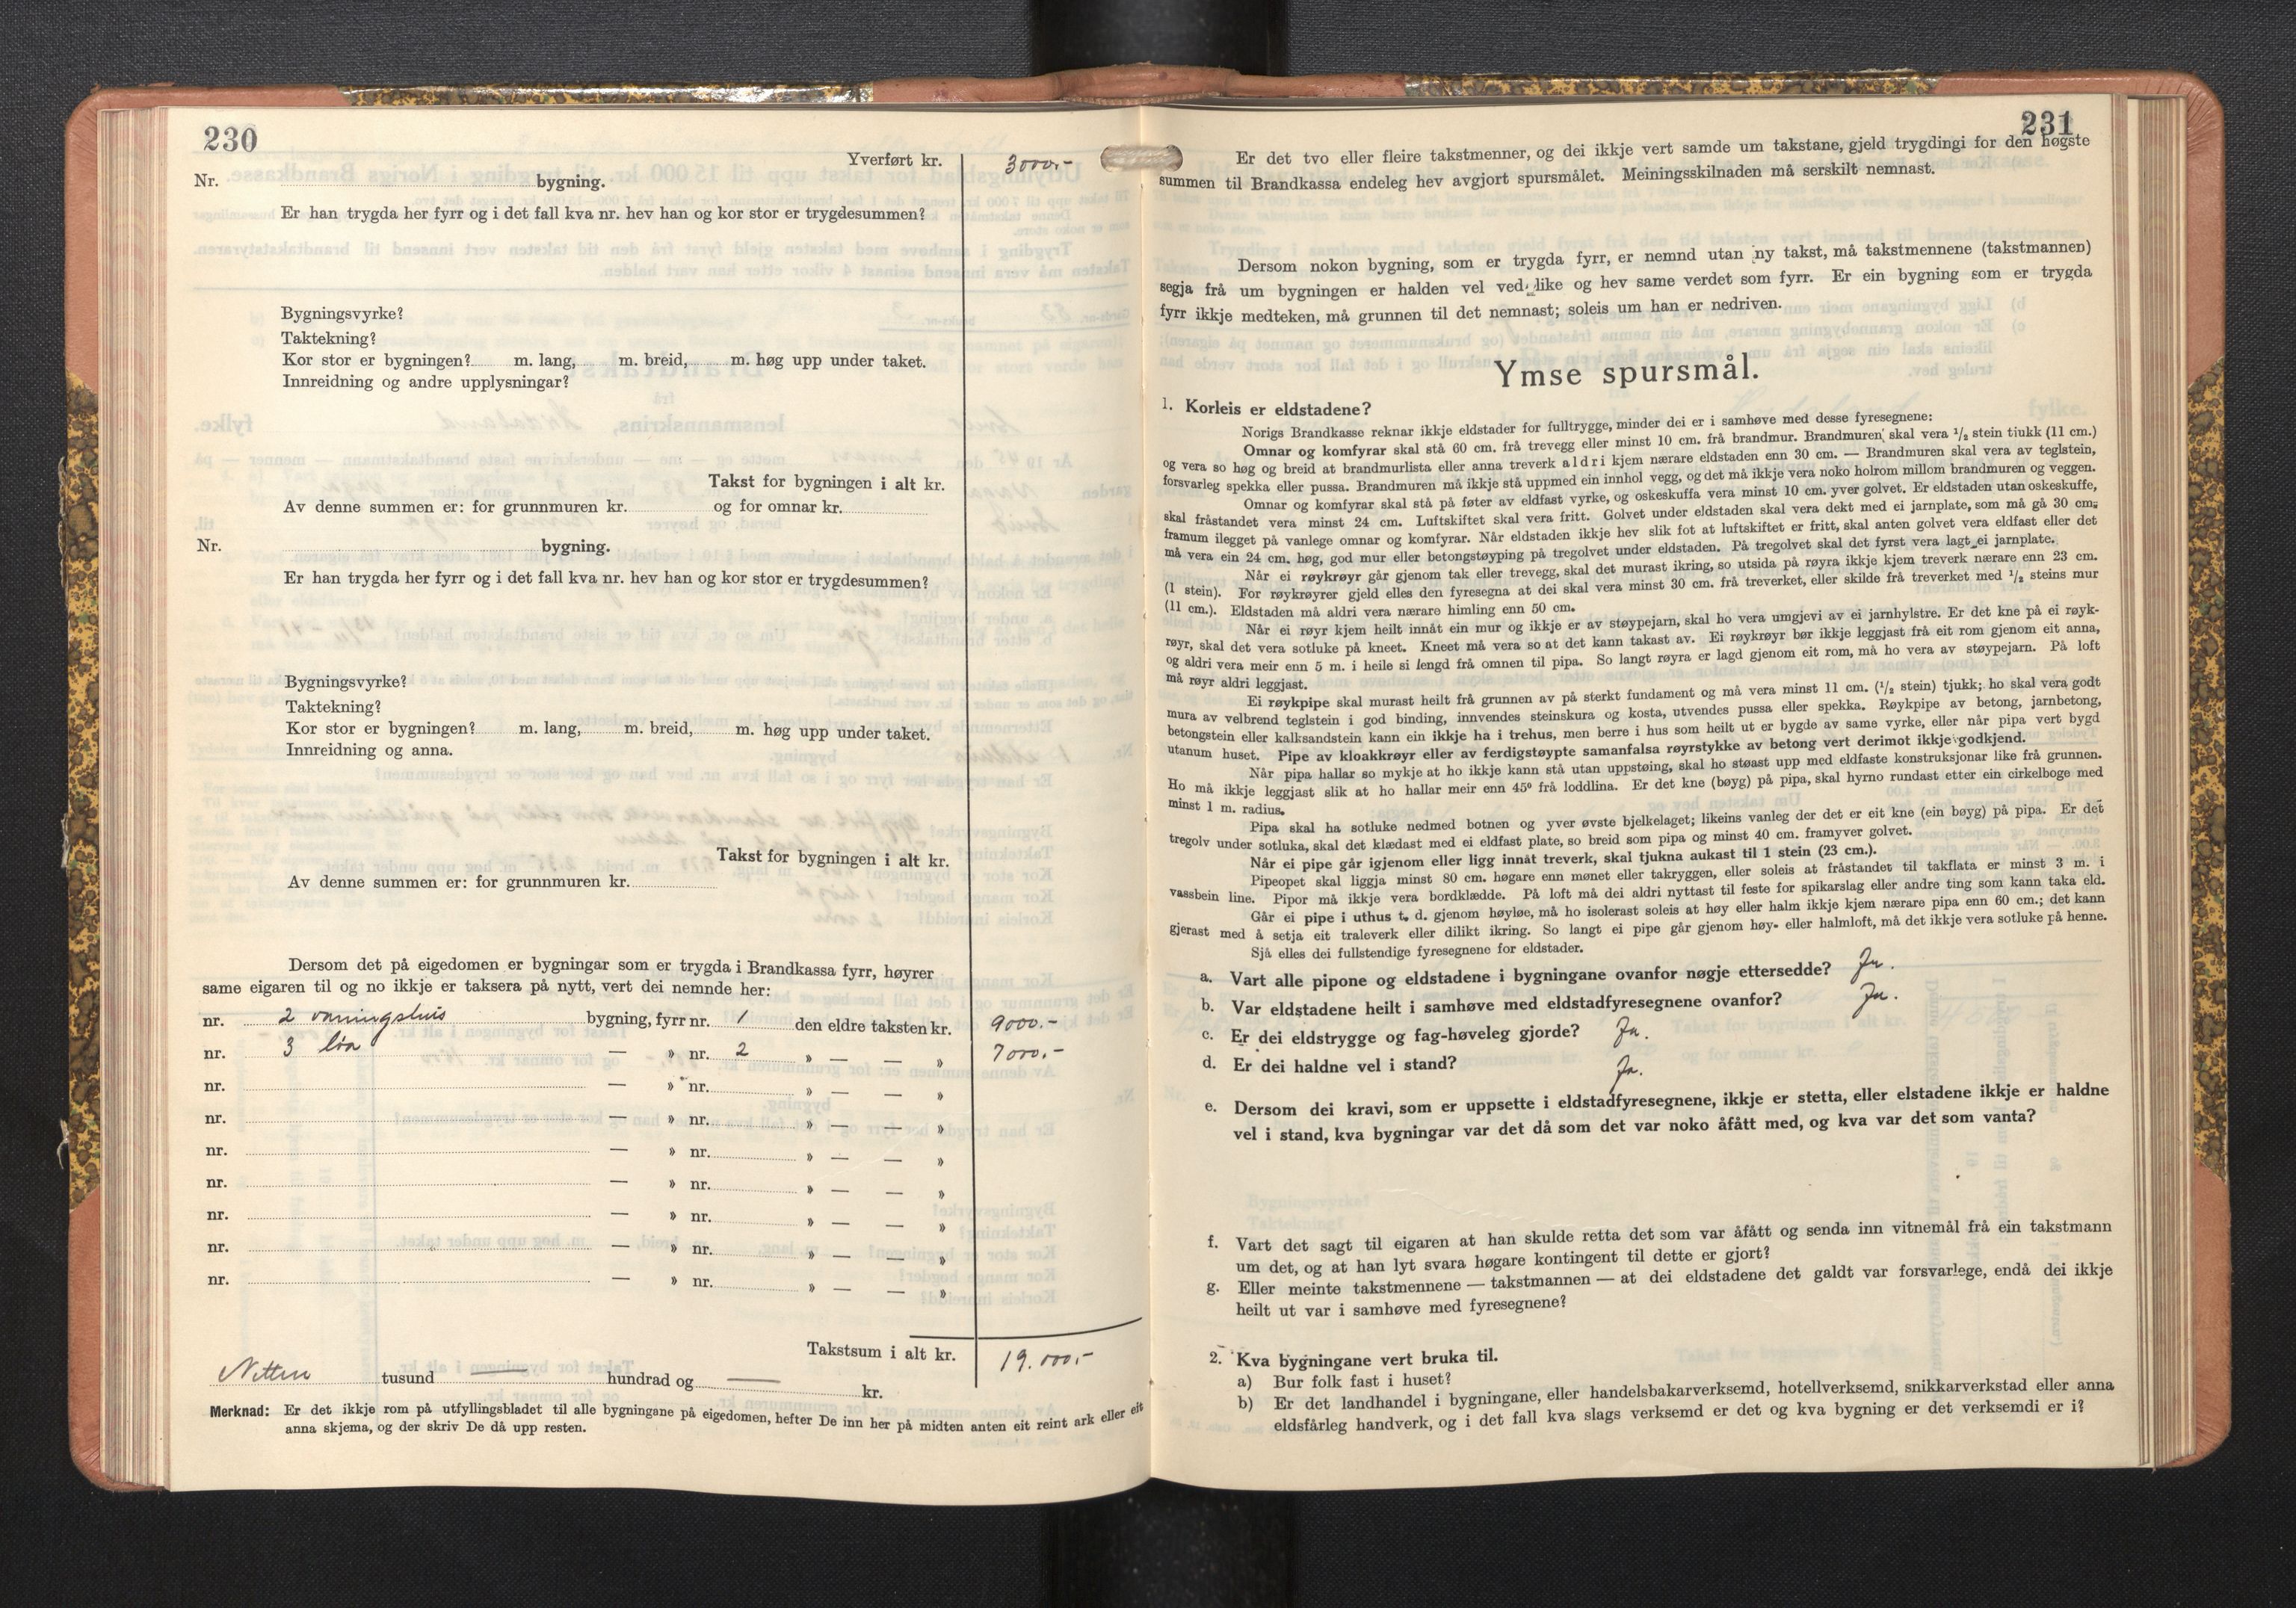 230
Yverført kr. 3000.-
Nr. bygning.
Er han trygda her fyrr og i det fall kva nr. hev han og kor stor er trygdesummen?
Bygningsvyrke?
Taktekning?
Kor stor er bygningen? m. lang, m. breid, m. høg upp under taket.
Innreidning og andre upplysningar?
Takst for bygningen i alt kr.
Av denne summen er: for grunnmuren kr. og for omnar kr.
Nr. bygning.
Er han trygda her fyrr og i det fall kva nr. hev han og kor stor er trygdesummen?
Bygningsvyrke?
Taktekning?
Kor stor er bygningen? m. lang, m. breid, m. høg upp under taket.
Innreidning og anna.
Takst for bygningen i alt kr.
Av denne summen er: for grunnmuren kr.
Dersom det på eigedomen er bygningar som er trygda i Brandkassa fyrr, høyrer
same eigaren til og no ikkje er taksera på nytt, vert dei nemnde her:
nr. 2 vaningshus bygning, fyrr nr. 1 den eldre taksten kr. 9000.-
nr. 3 løa — » nr. 2 » — — » 7000.-
nr. — » nr. » — — »
nr. — » nr. » — — »
nr. — » nr. » — — »
nr. — » nr. » — — »
nr. — » nr. » — — »
nr. — » nr. » — — »
nr. — » nr. » — — »
Takstsum i alt kr. 19.000.-
Nitten tusund — hundrad og — kr.
Merknad: Er det ikkje rom på utfyllingsbladet til alle bygningane på eigedomen, hefter De inn her på midten anten eit reint ark eller eit
anna skjema, og der skriv De då upp resten.
231
Er det tvo eller fleire takstmenner, og dei ikkje vert samde um takstane, gjeld trygdingi for den høgste
summen til Brandkassa endeleg hev avgjort spursmålet. Meiningsskilnaden må serskilt nemnast.
Dersom nokon bygning, som er trygda fyrr, er nemnd utan ny takst, må takstmennene (takstmannen)
segja frå um bygningen er halden vel ved like og hev same verdet som fyrr. Er ein bygning som er trygda
fyrr ikkje medteken, må grunnen til det nemnast; soleis um han er nedriven.
Ymse spursmål.
1. Korleis er eldstadene?
Norigs Brandkasse reknar ikkje eldstader for fulltrygge, minder dei er i samhøve med desse fyresegnene:
Omnar og komfyrar skal stå 60 cm. frå trevegg eller minst 10 cm. frå brandmur. Brandmuren skal vera 1/2 stein tjukk (11 cm.)
og vera so høg og breid at brandmurlista eller anna treverk aldri kjem nærare eldstaden enn 30 cm. — Brandmuren skal vera av teglstein,
forsvarleg spekka eller pussa. Brandmuren må ikkje stå uppmed ein innhol vegg, og det må ikkje vera noko holrom millom brandmuren og veggen.
Omnar og komfyrar skal stå på føter av eldfast vyrke, og oskeskuffa vera minst 10 cm. yver golvet. Er eldstaden utan oskeskuffe,
skal fråstandet vera minst 24 cm. Luftskiftet skal vera fritt. Golvet under eldstaden skal vera dekt med ei jarnplate, som må gå 30 cm.
framum ilegget på vanlege omnar og komfyrar. Når eldstaden ikkje hev slik fot at luftskiftet er fritt, skal anten golvet vera eldfast eller det
må vera ein 24 cm. høg, god mur eller betongstøyping på tregolvet under eldstaden. På tregolvet skal det fyrst vera lagt ei jarnplate.
Når ei røykrøyr går gjenom tak eller trevegg, skal det murast ikring, so utsida på røyra ikkje kjem treverk nærare enn 23 cm.
(1 stein). For røykrøyrer gjeld elles den fyresegna at dei skal vera minst 30 cm. frå treverket, eller skilde frå treverket med 1/2 steins mur
(11 cm.). Eldstaden må aldri vera nærare himling enn 50 cm.
Når ei røyr kjem heilt innåt ein mur og ikkje er av støypejarn, skal ho vera umgjevi av ei jarnhylstre. Er det kne på ei røyk-
røyr, skal det vera sotluke på kneet. Kneet må vera so at det kann takast av. Ei røykrøyr bør ikkje leggjast frå eit rom gjenom eit anna,
og aldri vera meir enn 5 m. i heile si lengd frå omnen til pipa. So langt røyra er lagd gjenom eit rom, må ho vera av støypejarn. På loft
må røyr aldri leggjast.
Ei røykpipe skal murast heilt frå grunnen av på sterkt fundament og må vera minst 11 cm. (1/2 stein) tjukk; ho skal vera godt
mura av velbrend teglstein i god binding, innvendes steinskura og kosta, utvendes pussa eller spekka. Røykpipe av betong, jarnbetong,
betongstein eller kalksandstein kann ein ikkje ha i trehus, men berre i hus som heilt ut er bygde av same vyrke, eller når pipa vert bygd
utanum huset. Pipe av kloakkrøyr eller av ferdigstøypte samanfalsa røyrstykke av betong vert derimot ikkje godkjend.
Når pipa hallar so mykje at ho ikkje kann stå utan uppstøing, skal ho støast upp med eldfaste konstruksjonar like frå grunnen.
Ho må ikkje leggjast slik at ho hallar meir enn 45º frå loddlina. Er det kne (bøyg) på pipa, skal hyrno rundast etter ein cirkelboge med
minst 1 m. radius.
Pipa skal ha sotluke nedmed botnen og yver øvste bjelkelaget; likeins vanleg der det er eit kne (ein bøyg) på pipa. Er det
tregolv under sotluka, skal det klædast med ei eldfast plate, so breid som pipa og minst 40 cm. framyver golvet.
Når ei pipe går igjenom eller ligg innåt treverk, skal tjukna aukast til 1 stein (23 cm.).
Pipeopet skal liggja minst 80 cm. høgare enn mønet eller takryggen, eller soleis at fråstandet til takflata er minst 3 m. i
vassbein line. Pipor må ikkje vera bordklædde. På loft må dei aldri nyttast til feste for spikarslag eller andre ting som kann taka eld.
Går ei pipe i uthus t. d. gjenom høyløe, må ho isolerast soleis at høy eller halm ikkje kjem nærare pipa enn 60 cm.; det kann
gjerast med å setja eit traleverk eller dilikt ikring. So langt ei pipe går gjenom høy- eller halmloft, må det ikkje vera sotluke på henne.
Sjå elles dei fullstendige fyresegnene for eldstader.
a. Vart alle pipone og eldstadene i bygningane ovanfor nøgje ettersedde? Ja.
b. Var eldstadene heilt i samhøve med eldstadfyresegnene ovanfor? Ja.
c. Er dei eldstrygge og fag-høveleg gjorde? Ja.
d. Er dei haldne vel i stand? Ja.
e. Dersom dei kravi, som er uppsette i eldstadfyresegnene, ikkje er stetta, eller elstadene ikkje er haldne
vel i stand, kva bygningar var det då som det var noko åfått med, og kva var det som vanta?
f. Vart det sagt til eigaren at han skulde retta det som var åfått og senda inn vitnemål frå ein takstmann
um det, og at han lyt svara høgare kontingent til dette er gjort?
g. Eller meinte takstmennene — takstmannen — at dei eldstadene det galdt var forsvarlege, endå dei ikkje
heilt ut var i samhøve med fyresegnene?
2. Kva bygningane vert bruka til.
a) Bur folk fast i huset?
b) Er det landhandel i bygningane, eller handelsbakarverksemd, hotellverksemd, snikkarverkstad eller anna
eldsfårleg handverk, og i det fall kva slags verksemd er det og kva bygning er det verksemdi er i?